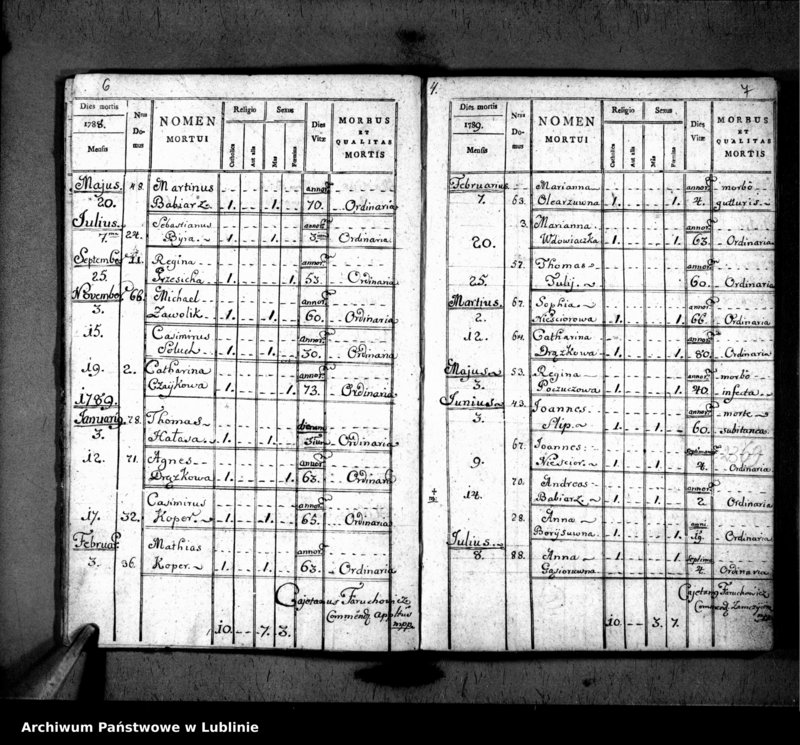 6
Dies mortis
1788.
Mensis
Nrus Domus
NOMEN
MORTUI
Religio
Catholica
Aut alia
Sexus
Mas
Fæmina
Dies Vitæ
MORBUS
ET
QUALITAS
MORTIS
Majus. 48. Martinus annor
20. Babiarz 1. 1. 70. Ordinaria
Julius Sebastianus annor
7. 24. Byra 1. 1. 3. Ordinaria
September 11. Regina annor
25. Przesicha 1. 1. 53. Ordinaria
November 66. Michael annor
3. Zawolik 1. 1. 60. Ordinaria
15. Casimirus annor
1. 1. 30. Ordinaria
19. 2. Catharina annor
Czaykowa 1. 1. 73. Ordinaria
1789.
Januarij 78. Thomas dierum
3. Halasa 1. 1. Ordinaria
12. 71. Agnes annor
Drązkowa 1. 1. 68. Ordinaria
Casimirus annor
17. 32. Koper 1. 1. 65. Ordinaria
Februar Mathias annor
3. 36. Koper 1. 1. 63. Ordinaria
Cajetanus Taruchowicz
Commend
mpp
10. 7. 3.
4. 7
Dies mortis
1789.
Mensis
Nrus Domus
NOMEN
MORTUI
Religio
Catholica
Aut alia
Sexus
Mas
Fæmina
Dies Vitæ
MORBUS
ET
QUALITAS
MORTIS
Februarius Marianna annor morbo
7. 63. Olearzuwna 1. 1. 4. gutturis
3. Marianna annor
20. Wdowiaczka 1. 1. 63. Ordinaria
57. Thomas annor
25. Tulij 1. 1. 60. Ordinaria
Martius 67. Sophia annor
2. Nieściorowa 1. 1. 66. Ordinaria
12. 64. Catharina annor
Drązkowa 1. 1. 80. Ordinaria
Majus 53. Regina annor morbo
3. Poczuczowa 1. 1. 40. infecta
Junius 43. Joannes annor morte
3. Slip 1. 1. 60. subitanea
67. Joannes
9. Nieścior 1. 1. 4. Ordinaria
70. Andreas annor
14. Babiarz 1. 1. 2 Ordinaria
28. Anna anni
Borysuwna 1. 1. Ordinaria
Julius Anna
8. 88. Gąsioruwna 1. 1. 4. Ordinaria
Cajetan Taruchowicz
Commend
mpp
10. 3. 7.
Archiwum Państwowe w Lublinie